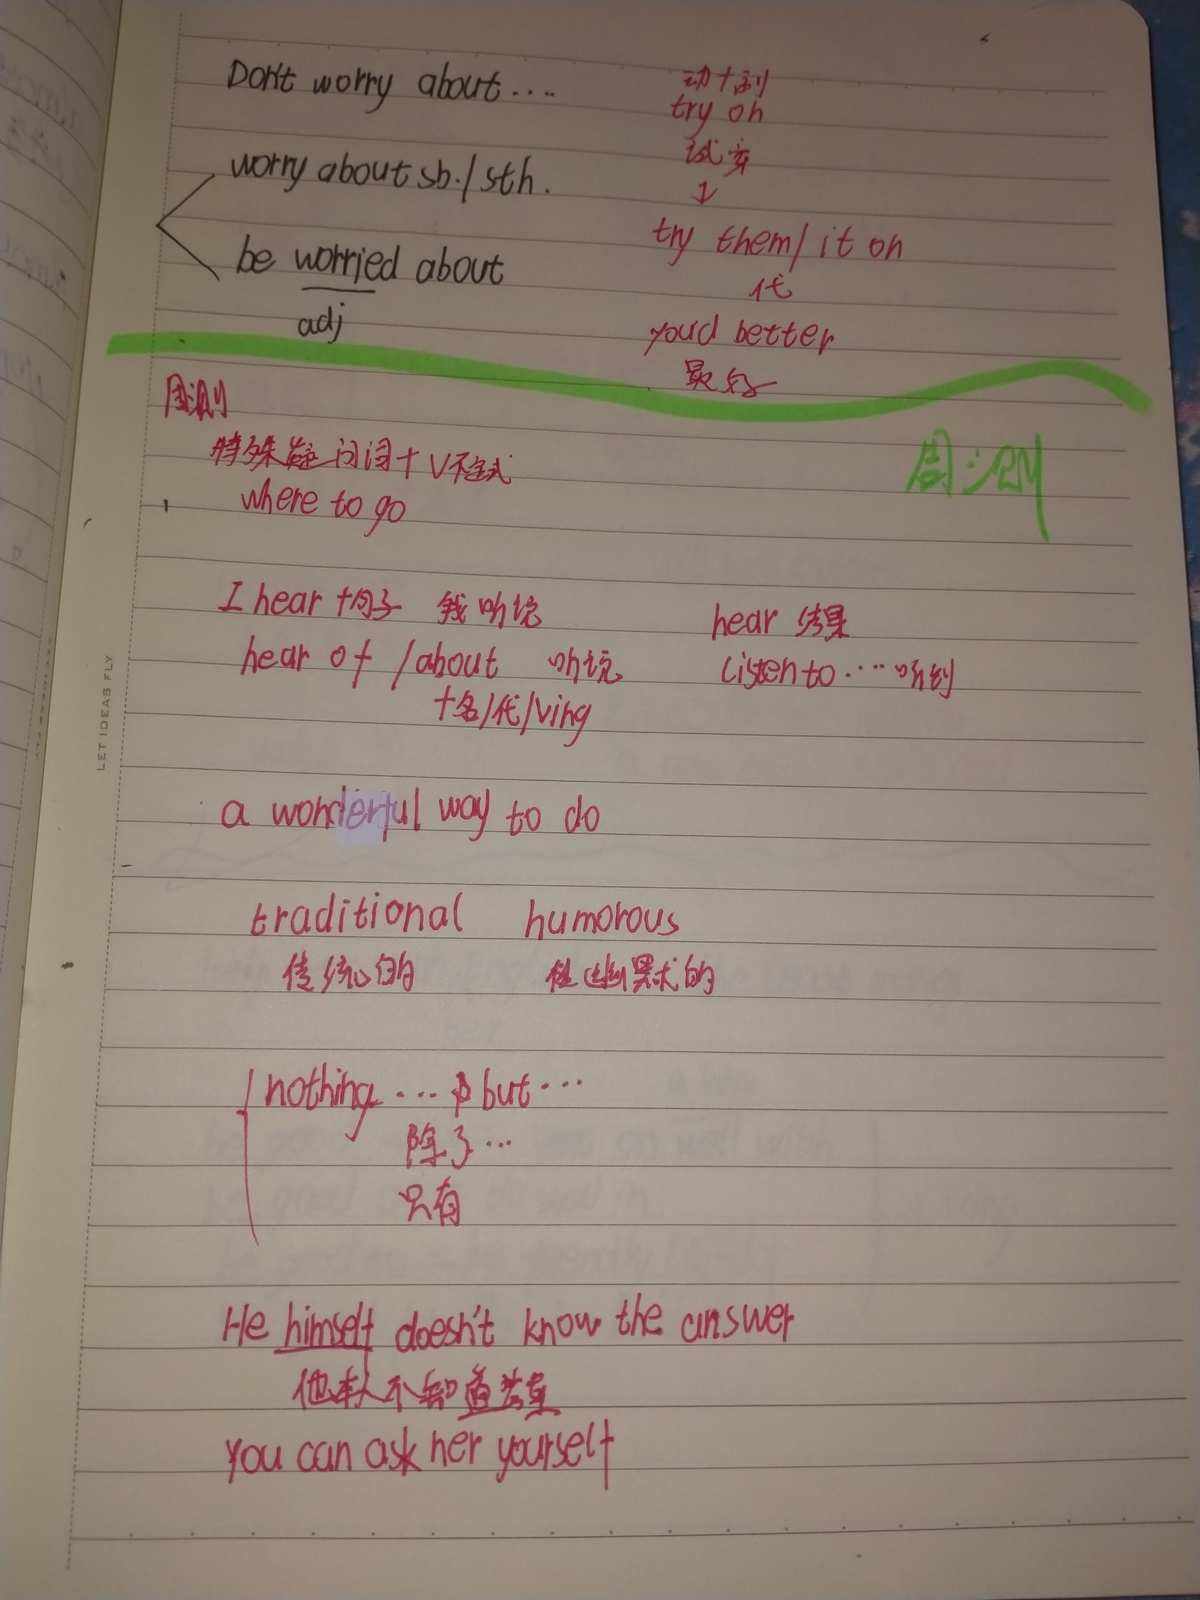 Don't worry about....
worry about sb./sth.
be worried about
adj
动+副
try on
试穿
↓
try them/it on
代
you'd better
最好
周测
周测
特殊疑问词+V不定式
where to go
I hear+句子 我听说
hear of/about 听说
+名/代/ving
hear 结果
Listen to.... 听到
a wonderful way to do
traditional humorous
传统的 幽默的
nothing ... but ...
除了...
只有
He himself doesn't know the answer
他本人不知道答案
You can ask her yourself
LET IDEAS FLY